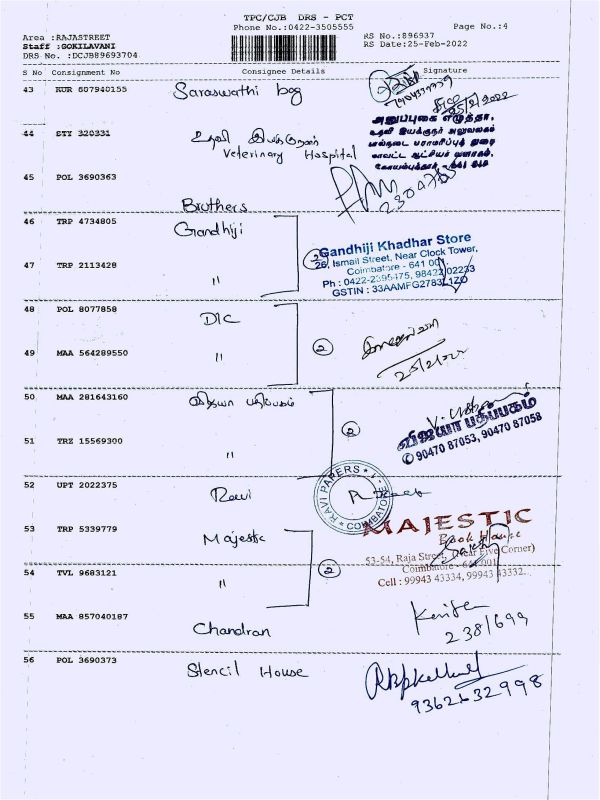 TPC/CJB DRS - PCT
Phone No.:0422-3505555
Page No.:4
Area :RAJASTREET
Staff :GOKILAVANI
DRS No. :DCJB89693704
RS No.:896937
RS Date:25-Feb-2022
S No Consignment No Consignee Details Signature
43 KUR 607940155 Saraswathi bag
25/2/2022
44 STY 320331 உதவி இயக்குநர்
Veterinary Hospital
அனுப்புகை எழுத்தர்,
உதவி இயக்குநர் அலுவலகம்
பால்நடை பராமரிப்புத் துறை
மாவட்ட ஆட்சியர் வளாகம்,
கோயம்புத்தூர் - 641 018
45 POL 3690363
Bruthers
46 TRP 4734805 Gandhiji
2
Gandhiji Khadhar Store
26, Ismail Street, Near Clock Tower,
Coimbatore - 641 001
Ph : 0422-2395475, 98422 02233
GSTIN : 33AAMFG2783L1ZO
47 TRP 2113428 "
48 POL 8077858 DIC
2
49 MAA 564289550 "
25/2/2022
50 MAA 281643160 விஜயா பதிப்பகம்
2
விஜயா பதிப்பகம்
90470 87053, 90470 87058
51 TRZ 15569300 "
52 UPT 2022375 Ravi
RAVI PAPERS
COIMBATORE
53 TRP 5339779 Majestic
2
MAJESTIC
Book House
53-54, Raja Street, (Near Five Corner)
Coimbatore - 641 001
Cell : 99943 43334, 99943 43332.
54 TVL 9683121 "
55 MAA 857040187 Chandran
2381699
56 POL 3690373 Stencil House
9362632998